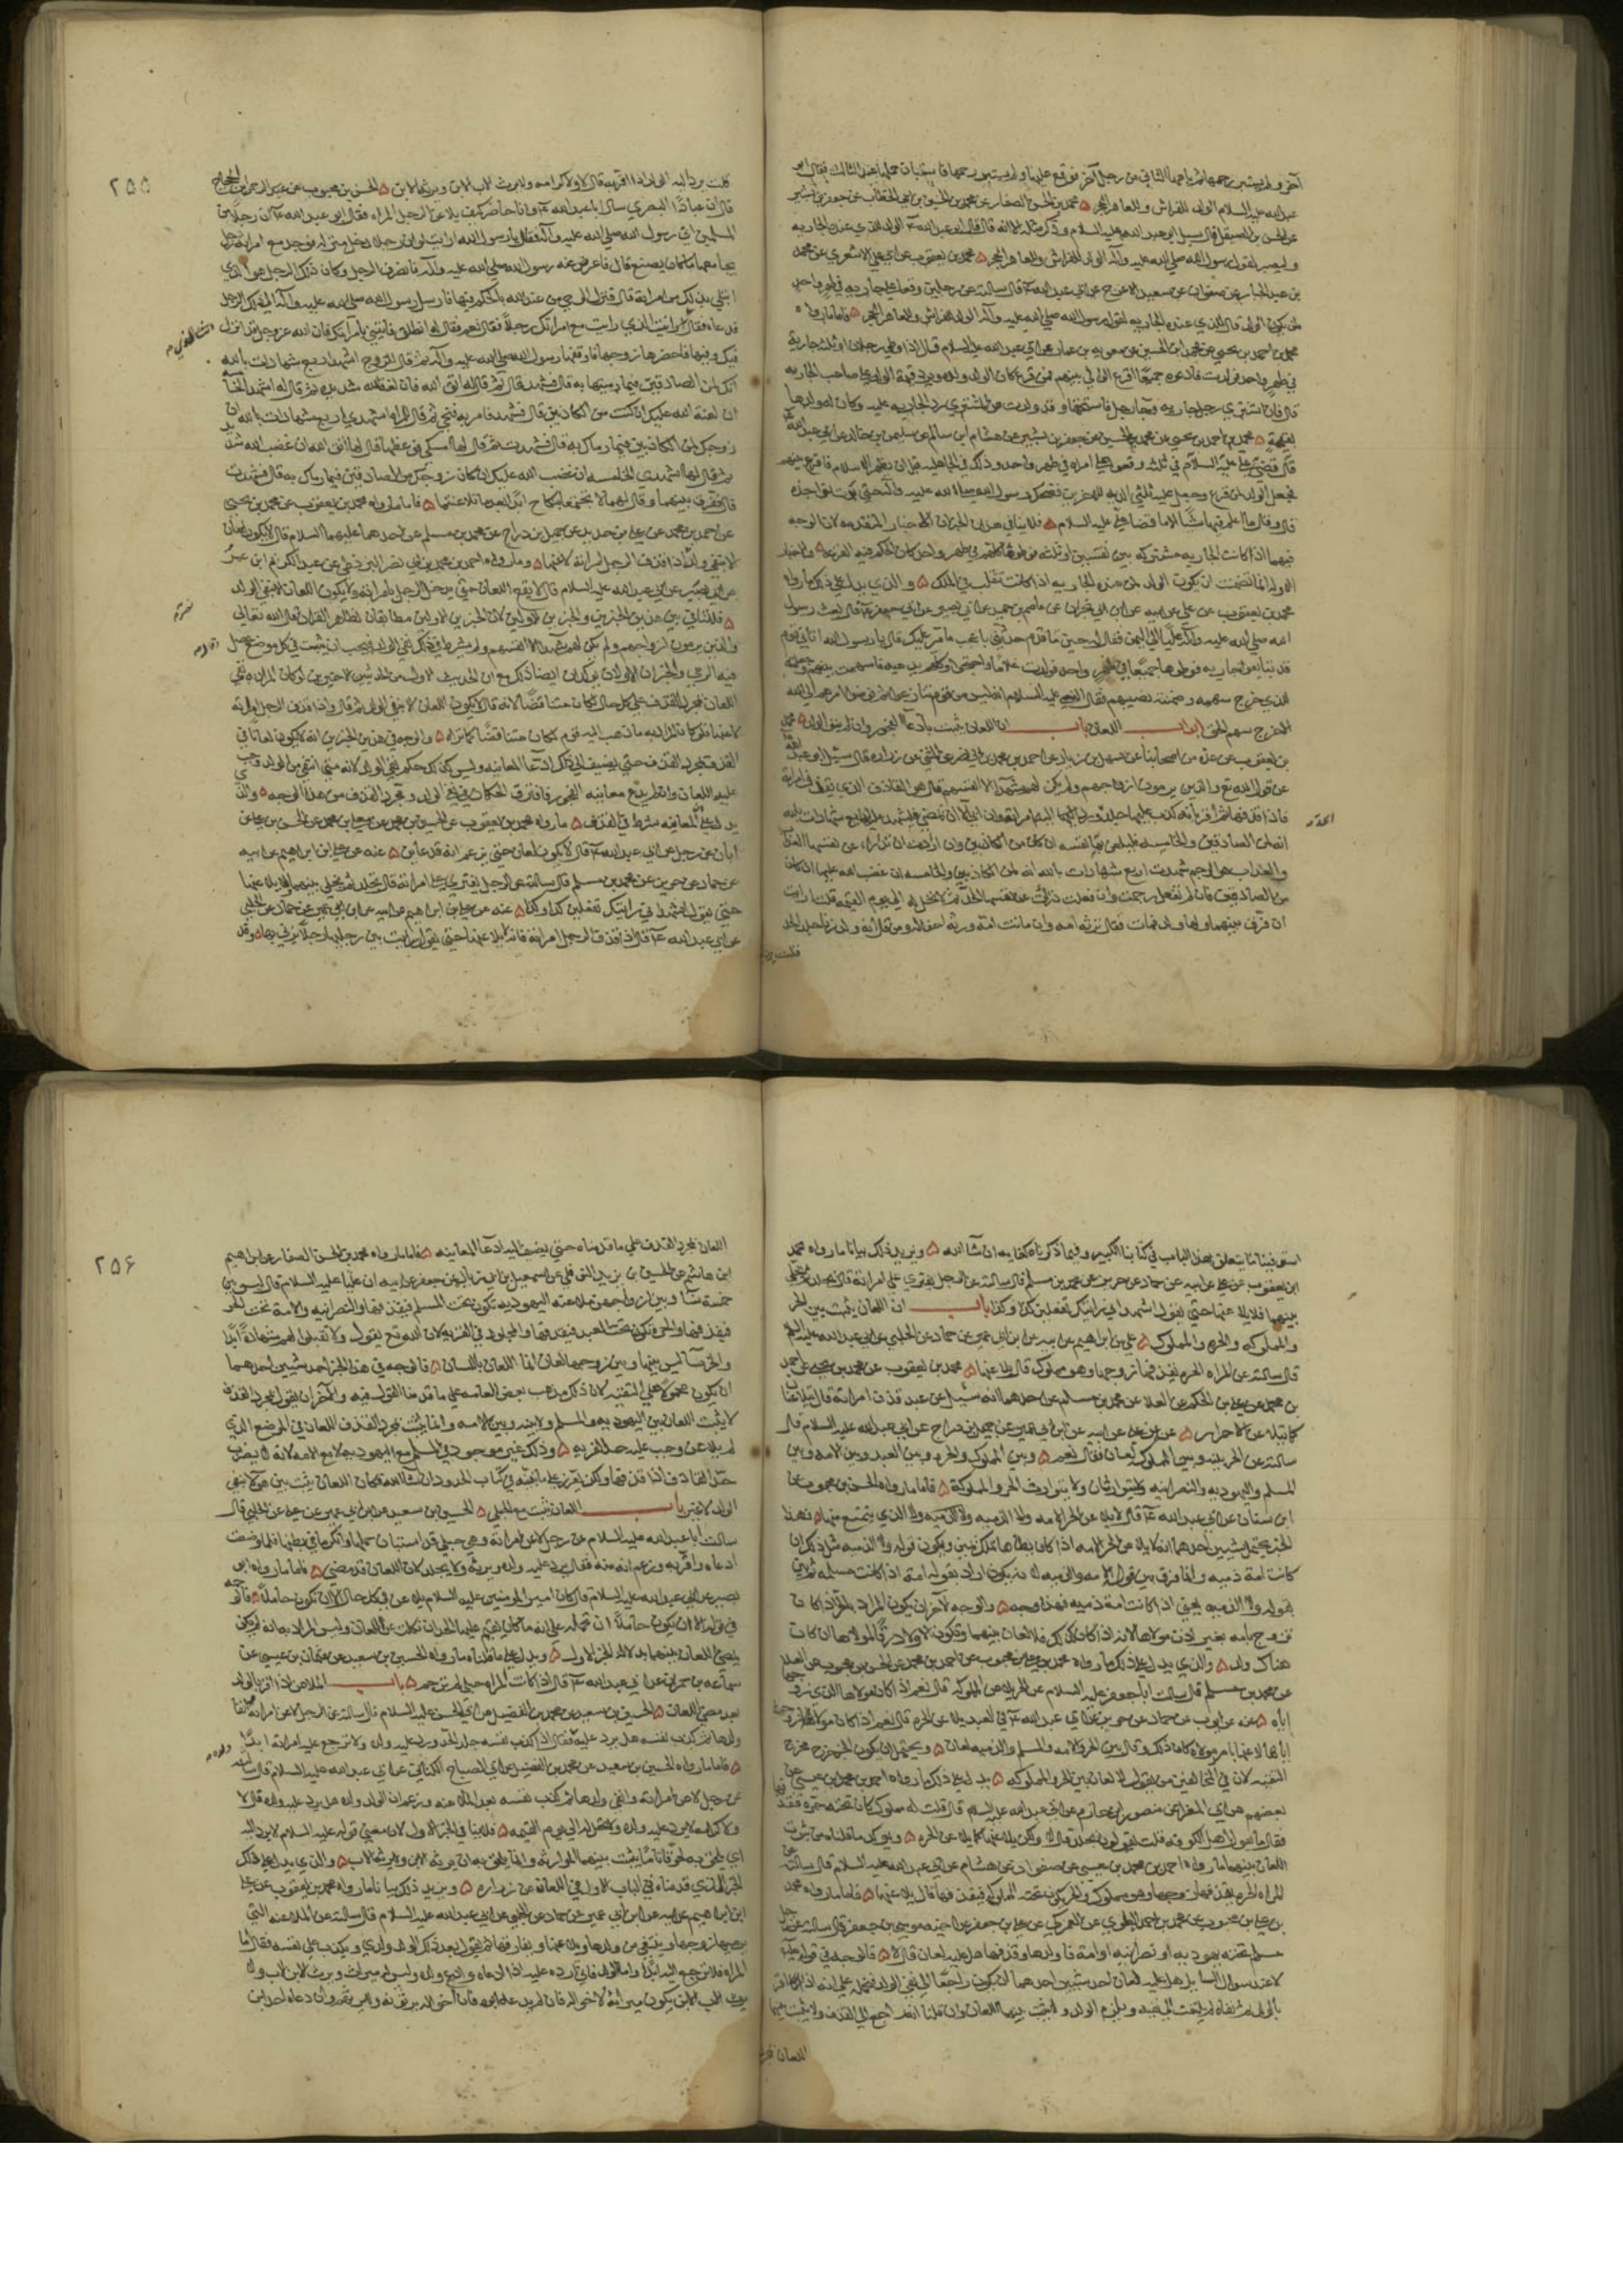 آخر ولم يستبر رحمها ثم باعها الثاني من رجل آخر فوقع عليها ولم يستبر رحمها فاستبان حملها عند الثالث فقال ابو
عبد الله عليه السلام الولد للفراش وللعاهر الحجر ۵ محمد بن الحسن الصفار عن محمد بن الحسين بن ابي الخطاب عن جعفر بن بشير
عن الحسن بن الصيقل قال سئل ابو عبد الله عليه السلام وذكر مثله الا انه قال قال ابو عبد الله ع الولد للذي عنده الجاريه
وليصبر لقول رسول الله صلي الله عليه وآله الولد للفراش وللعاهر الحجر ۵ محمد بن يعقوب عن ابي علي الاشعري عن محمد
بن عبد الجبار عن صفوان عن سعيد الاعرج عن ابي عبد الله ع قال سالته عن رجلين وقعا علي جاريه في طهر واحد
لمن يكون الولد قال للذي عنده الجاريه لقول رسول الله صلي الله عليه وآله الولد للفراش وللعاهر الحجر ۵ فاما ما رواه
محمد بن احمد بن يحيي عن محمد بن الحسين عن معويه بن عمار عن ابي عبد الله عليه السلام قال اذا وطي رجلان او ثلثه جاريه
في طهر واحد فولدت فادعوه جميعا اقرع الوالي بينهم فمن قرع كان الولد ولده ويرد قيمة الولد علي صاحب الجاريه
قال فان اشتري رجل جاريه وجاء رجل فاستحقها وقد ولدت من المشتري رد الجاريه عليه وكان له ولدها
بقيمته ۵ محمد بن احمد بن يحيي عن محمد بن الحسين عن جعفر بن بشير عن هشام بن سالم عن سليمن بن خالد عن ابي عبد الله ع
قال قضي علي عليه السلام في ثلثه وقعوا علي امراه في طهر واحد وذلك في الجاهليه قبل ان يظهر الاسلام فاقرع بينهم
فجعل الولد لمن قرع وجعل عليه ثلثي الديه للاخرين فضحك رسول الله صلي الله عليه وآله حتي بدت نواجذه
قال وقال ما اعلم فيها شيئا الا ما قضاه علي عليه السلام ۵ فلا ينافي هذين الخبرين الاخبار المتقدمه لان الوجه
فيهما اذا كانت الجاريه مشتركه بين نفسين او ثلثه فوطؤها كلهم في طهر واحد كان الحكم فيه القرعه ۵ والاخبار
الاوله انما تضمنت ان يكون الولد لمن عنده الجاريه اذا كانت تنقلب في الملك ۵ والذي يدل علي ذلك ما رواه
محمد بن يعقوب عن علي عن ابيه عن ابن ابي نجران عن عاصم بن حميد عن ابي بصير عن ابي جعفر ع قال بعث رسول
الله صلي الله عليه وآله عليا الي اليمن فقال له حين قدم حدثني باعجب ما مر عليك قال يا رسول الله اتاني قوم
قد تبايعوا جاريه فوطوها جميعا في طهر واحد فولدت غلاما واحتجوا فيه كلهم يدعيه فاسهمت بينهم وجعلته
للذي خرج سهمه وضمنته نصيبهم فقال النبي عليه السلام انه ليس من قوم تنازعوا ثم فوضوا امرهم الي الله
الا خرج سهم المحق ابواب اللعان باب ان اللعان يثبت بادعاء الفجور وان لم ينف الولد ۵ محمد
بن يعقوب عن عدة من اصحابنا عن سهل بن زياد عن احمد بن محمد بن ابي نصر عن المثني عن زراره قال سئل ابو عبد الله
عن قول الله تع والذين يرمون ازواجهم ولم يكن لهم شهداء الا انفسهم قال هو القاذف الذي يقذف امراته
فاذا قذفها ثم اقر بانه كذب عليها جلد الحد وردت اليه امراته وان ابي الا ان يمضي فليشهد عليها اربع شهادات بالله
انه لمن الصادقين والخامسه فليلعن فيها نفسه ان كان من الكاذبين وان ارادت ان تدرا عن نفسها العذاب
والعذاب هو الرجم شهدت اربع شهادات بالله انه لمن الكاذبين والخامسه ان غضب الله عليها ان كان
من الصادقين فان لم تفعل رجمت وان فعلت درات عن نفسها الحد ثم لا تحل له الي يوم القيمه قلت ارايت
ان فرق بينهما ولها ولد فمات فقال ترثه امه وان ماتت امه ورثه اخواله ومن قال انه ولد زنا جلد الحد
قلت يرد
۲۵۵
قلت يرد اليه الولد اذا اقر به قال لا ولا كرامه ولا يرث الاب الابن ويرثه الابن ۵ الحسن بن محبوب عن عبد الرحمن بن الحجاج
قال ان عبادا البصري سال ابا عبد الله ع وانا حاضر كيف يلاعن الرجل المراه فقال ابو عبد الله ع ان رجلا من
المسلمين اتي رسول الله صلي الله عليه وآله فقال يا رسول الله ارايت لو ان رجلا دخل منزله فوجد مع امراته رجلا
يجامعها ما كان يصنع قال فاعرض عنه رسول الله صلي الله عليه وآله فانصرف الرجل وكان ذلك الرجل هو الذي
ابتلي بذلك من امراته قال فنزل الوحي من عند الله بالحكم فيها فارسل رسول الله صلي الله عليه وآله الي ذلك الرجل
فدعاه فقال انت الذي رايت مع امراتك رجلا فقال نعم فقال له انطلق فايتني بامراتك فان الله عز وجل قد انزل
فيك وفيها فاحضرها زوجها فاوقفها رسول الله صلي الله عليه وآله ثم قال للزوج اشهد اربع شهادات بالله
انك لمن الصادقين فيما رميتها به قال فشهد قال ثم قال له اتق الله فان لعنة الله شديده ثم قال له اشهد الخامسه
ان لعنة الله عليك ان كنت من الكاذبين قال فشهد فامر به فنحي ثم قال للمراه اشهدي اربع شهادات بالله ان
زوجك لمن الكاذبين فيما رماك به قال فشهدت ثم قال لها امسكي فوعظها قال لها اتقي الله ان غضب الله شديد
ثم قال لها اشهدي الخامسه ان غضب الله عليك ان كان زوجك من الصادقين فيما رماك به قال فشهدت
قال ففرق بينهما وقال لهما لا تجتمعا بنكاح ابدا بعد ما تلاعنتما ۵ فاما ما رواه محمد بن يعقوب عن محمد بن يحيي
عن احمد بن محمد عن علي بن حديد عن جميل بن دراج عن محمد بن مسلم عن احدهما عليهما السلام قال لا يكون لعان
الا بنفي ولد اذا قذف الرجل امراته لاعنها ۵ وما رواه احمد بن محمد بن ابي نصر البزنطي عن عبد الكريم
عن ابي بصير عن ابي عبد الله عليه السلام قال لا يقع اللعان حتي يدخل الرجل بامراته ولا يكون اللعان الا بنفي الولد
۵ فلا تنافي بين هذين الخبرين والخبرين الاولين لان الخبرين الاولين مطابقان لظاهر القران قال الله تعالي
والذين يرمون ازواجهم ولم يكن لهم شهداء الا انفسهم ولم يشرط في ذلك نفي الولد فيجب ان يثبت في كل موضع يحصل
فيه الرمي والخبران الاولان يوكدان ايضا ذلك مع ان الحديث الاول من الحديثين الاخيرين لو كان المراد به نفي
اللعان بمجرد القذف علي كل حال لكان متناقضا لانه قال لا يكون اللعان الا بنفي الولد ثم قال واذا قذف الرجل امراته
لاعنها فلو كان المراد به ما ذهب اليه قوم لكان متناقضا كما تراه ۵ والوجه في هذين الخبرين انه لا يكون لعان في
القذف بمجرد القذف حتي يضيف الي ذلك ادعاء المعاينه وليس كذلك حكم نفي الولد لانه متي انتفي من الولد وجب
عليه اللعان وان لم يدع معاينه الفجور فافترق الحكمان في نفي الولد ومجرد القذف من هذا الوجه ۵ والذي
يدل علي ان المعاينه شرط في القذف ۵ ما رواه محمد بن يعقوب عن الحسين بن محمد عن معلي بن محمد عن الحسن بن علي عن
ابان عن رجل عن ابي عبد الله ع قال لا يكون لعان حتي يزعم انه قد عاين ۵ عنه عن علي بن ابراهيم عن ابيه
عن حماد عن حريز عن محمد بن مسلم قال سالته عن الرجل يفتري علي امراته قال يجلد ثم يخلي بينهما ولا يلاعنها
حتي يقول اشهد اني رايتك تفعلين كذا وكذا ۵ عنه عن علي بن ابراهيم عن ابيه عن ابن ابي عمير عن حماد عن الحلبي
عن ابي عبد الله ع قال اذا قذف الرجل امراته فانه لا يلاعنها حتي يقول رايت بين رجليها رجلا يزني بها ۵ وقد
استوفينا ما يتعلق بهذا الباب في كتابنا الكبير وفيما ذكرناه كفايه ان شاء الله ۵ ويزيد ذلك بيانا ما رواه محمد
بن يعقوب عن علي عن ابيه عن حماد عن حريز عن محمد بن مسلم قال سالته عن الرجل يفتري علي امراته قال يجلد ثم يخلي
بينهما ولا يلاعنها حتي يقول اشهد اني رايتك تفعلين كذا وكذا باب ان اللعان يثبت بين الحر
والمملوكه والحره والمملوك ۵ علي بن ابراهيم عن ابيه عن ابن ابي عمير عن حماد عن الحلبي عن ابي عبد الله عليه السلم
قال سالته عن المراه الحره يقذفها زوجها وهو مملوك قال يلاعنها ۵ محمد بن يعقوب عن محمد بن يحيي عن احمد
بن محمد عن علي بن الحكم عن العلا عن محمد بن مسلم عن احدهما انه سئل عن عبد قذف امراته قال يتلاعنان
كما يتلاعن الاحرار ۵ عنه عن علي عن ابيه عن ابن ابي عمير عن جميل بن دراج عن ابي عبد الله عليه السلام قال
سالته عن الحر بينه وبين المملوكه لعان فقال نعم ۵ وبين المملوك والحره وبين العبد وبين الامه وبين
المسلم واليهوديه والنصرانيه ولا يتوارثان ولا يتوارث الحر والمملوكة ۵ فاما ما رواه الحسن بن محبوب عن
ابن سنان عن ابي عبد الله ع قال لا يلاعن الحر الامه ولا الذميه ولا التي يتمتع منها ۵ فهذا
الخبر يحتمل شيئين احدهما انه لا يلاعن الحر الامه اذا كان يطاها بملك يمين ويكون قوله ولا الذميه مثل ذلك ان
كانت امة ذميه وانما فرق بين قوله الامه والذميه لانه يكون اراد بقوله امة اذا كانت مسلمه ثم بين
بقوله ولا الذميه يعني اذا كانت امة ذميه فهذا وجه ۵ والوجه الآخر ان يكون المراد بالحر اذا كان
تزوج بامه بغير اذن مولاها لانه اذا كان كذلك فلا لعان بينهما وتكون الاولاد رقا لمولاها ان كان
هناك ولد ۵ والذي يدل علي ذلك ما رواه محمد بن علي بن محبوب عن احمد بن محمد عن الحسن بن محبوب عن العلا
عن محمد بن مسلم قال سالت ابا جعفر عليه السلام عن الحر يلاعن المملوكه قال نعم اذا كان مولاها الذي زوجها
اياه ۵ عنه عن ايوب عن حماد عن حريز عن ابي عبد الله ع في العبد يلاعن الحره قال نعم اذا كان مولاه زوجه
اياها لاعنها بامر مولاه كان ذلك وقال بين الحر والامه والمسلم والذميه لعان ۵ ويحتمل ان يكون الخبر خرج مخرج
التقيه لان في المخالفين من يقول لا لعان بين الحر والمملوكه ۵ يدل علي ذلك ما رواه احمد بن محمد بن عيسي عن
بعضهم عن ابي المغرا عن منصور بن حازم عن ابي عبد الله عليه السلام قال قلت له مملوك كان تحته حرة فقذفها
فقال ما يقول فيها اهل الكوفه قلت يقولون يجلد قال لا ولكن يلاعنها كما يلاعن الحره ۵ ويوكد ما قلناه من ثبوت
اللعان بينهما ما رواه احمد بن محمد بن عيسي عن صفوان عن هشام عن ابي عبد الله عليه السلام قال سالته عن
المراه الحره يقذفها زوجها وهو مملوك والحر يكون تحته المملوكه فيقذفها قال يلاعنها ۵ فاما ما رواه محمد
بن علي بن محبوب عن محمد بن احمد العلوي عن العمركي عن علي بن جعفر عن اخيه موسي بن جعفر قال سالته عن رجل
مسلم تحته يهوديه او نصرانيه او امة فاولدها وقذفها هل عليه لعان قال لا ۵ فالوجه في قوله عليه
لا عند سوال السايل هل عليه لعان احد شيئين احدهما ان يكون راجعا الي نفي الولد فيحمل علي انه اذا كان اقر
بالولد ثم نفاه لم يلتفت الي نفيه ويلزم الولد ولا يثبت بينهما اللعان وان قلنا انه راجع الي القذف ولا يثبت بينهما
اللعان بمجرد
۲۵۶
اللعان بمجرد القذف علي ما قدمناه حتي يضيف اليه ادعاء المعاينه ۵ فاما ما رواه محمد بن الحسن الصفار عن ابراهيم
ابن هاشم عن الحسين بن يزيد النوفلي عن اسمعيل بن ابي زياد عن جعفر عن ابيه ان عليا عليه السلام قال ليس بين
خمسة نساء وبين ازواجهن ملاعنه اليهوديه تكون تحت المسلم فيقذفها والنصرانيه والامة تحت الحر
فيقذفها والحره تكون تحت العبد فيقذفها والمجلود في الفريه لان الله تع يقول ولا تقبلوا لهم شهادة ابدا
والخرساء ليس بينها وبين زوجها لعان انما اللعان باللسان ۵ فالوجه في هذا الخبر احد شيئين احدهما
ان يكون محمولا علي التقيه لان ذلك مذهب بعض العامه علي ما قدمنا القول فيه والآخر ان يقول بمجرد القذف
لا يثبت اللعان بين اليهوديه والمسلم ولا بينه وبين الامه وانما يثبت بمجرد القذف اللعان في الموضع الذي
لم يلاعن وجب عليه حد الفريه ۵ وذلك غير موجود في المسلم مع اليهوديه ولا مع الامه لانه لا يضرب
حد القاذف اذا قذفها ولكن يعزر علي ما نبينه في كتاب الحدود ان شاء الله فكان اللعان يثبت بين هولاء بنفي
الولد لا غير باب اللعان يثبت مع الحبلي ۵ الحسين بن سعيد عن ابن ابي عمير عن حماد عن الحلبي قال
سالت ابا عبد الله عليه السلام عن رجل لاعن امراته وهي حبلي قد استبان حملها وانكر ما في بطنها فلما وضعت
ادعاه واقر به وزعم انه منه فقال يرد عليه ولده ويرثه ولا يجلد لان اللعان قد مضي ۵ فاما ما رواه ابو
بصير عن ابي عبد الله عليه السلام قال كان امير المومنين عليه السلام يلاعن في كل حال الا ان تكون حاملا ۵ فالوجه
في قوله الا ان يكون حاملا ان نحمله علي انه ما كان يقيم عليها الحد ان نكلت عن اللعان وليس المراد به انه لم يكن
يمضي اللعان بينهما بدلالة الخبر الاول ۵ ويدل علي ما قلناه ما رواه الحسين بن سعيد عن عثمان بن عيسي عن
سماعه بن مهران عن ابي عبد الله ع قال اذا كانت المراه حبلي لم ترجم ۵ باب الملاعن اذا اقر بالولد
بعد مضي اللعان ۵ الحسين بن سعيد عن محمد بن الفضيل عن ابي الحسن عليه السلام قال سالته عن الرجل لاعن امراته وانتفا
ولدها ثم اكذب نفسه هل يرد عليه فقال اذا اكذب نفسه جلد الحد ورد عليه ولده ولا ترجع عليه امراته ابدا
۵ فاما ما رواه الحسين بن سعيد عن محمد بن الفضيل عن ابي الصباح الكناني عن ابي عبد الله عليه السلام قال سالته
عن رجل لاعن امراته وانتفي ولدها ثم اكذب نفسه بعد الملاعنه وزعم ان الولد ولده هل يرد عليه ولده قال لا
ولا كرامه لا يرد عليه ولده ولا تحل له الي يوم القيمه ۵ فلا ينافي الخبر الاول لان معني قوله عليه السلام لا يرد اليه
اي يلحق به لحوقا تاما يثبت بينهما الموارثه وانما يلحق به بان يرثه الابن ولا يرثه الاب ۵ والذي يدل علي ذلك
الخبر الذي قدمناه في الباب الاول في اللعان عن زراره ۵ ويزيد ذلك بيانا ما رواه محمد بن يعقوب عن علي
ابن ابراهيم عن ابيه عن ابن ابي عمير عن حماد عن الحلبي عن ابي عبد الله عليه السلام قال سالته عن الملاعنه التي
يرميها زوجها وينتفي من ولدها ويلاعنها ويفارقها ثم يقول بعد ذلك الولد ولدي ويكذب علي نفسه فقال اما
المراه فلا ترجع اليه ابدا واما الولد فاني ارده عليه اذا ادعاه ولا ادع ولده وليس له ميراث ويرث الابن الاب ولا
يرث الاب الابن يكون ميراثه لاخواله فان لم يدعه ابوه فان اخواله يرثونه ولا يرثهم وان دعاه احد ابن